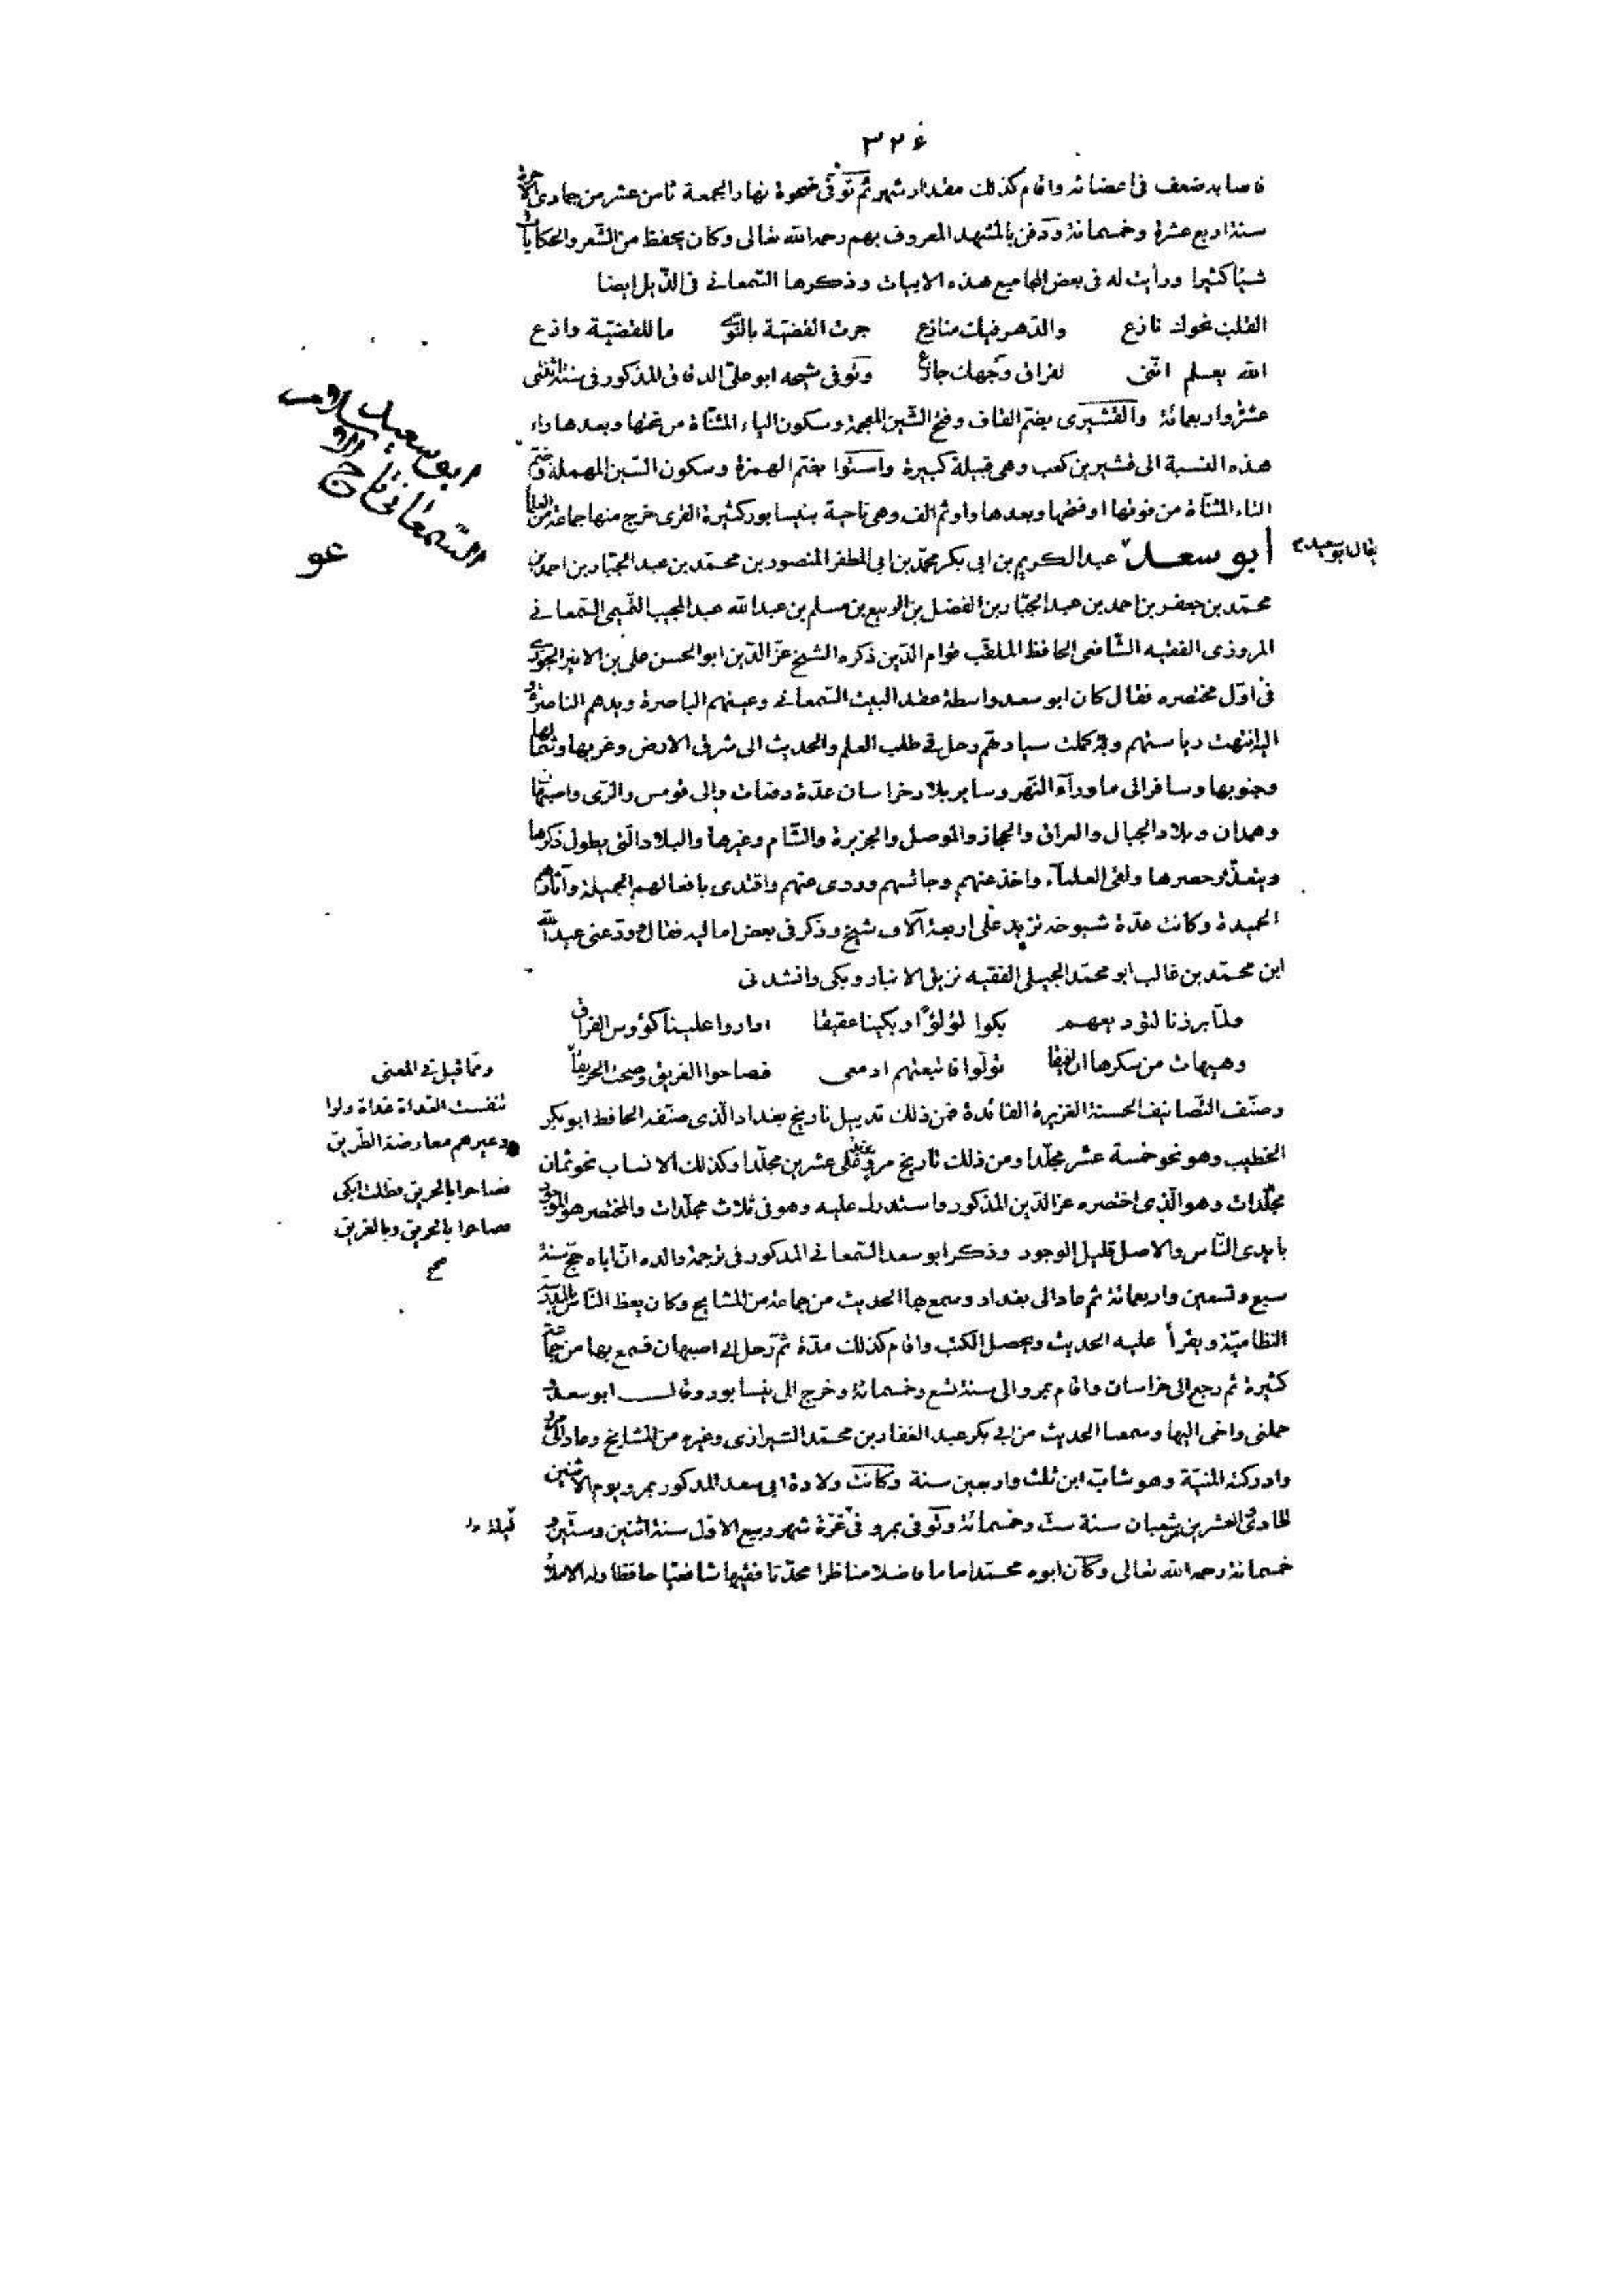 ٣٢٤
فاصابه ضعف فى اعضائه واقام كذلك مقدار شهر ثم توفى ضحوة نهار الجمعة ثامن عشر من جمادى الآخرة
سنة اربع عشرة وخمسمائة ودفن بالمشهد المعروف بهم رحمه الله تعالى وكان يحفظ من الشعر والحكايات
شيئا كثيرا ورأيت له فى بعض المجاميع هذه الابيات وذكرها السمعانى فى الذيل ايضا
القلب نحوك نازع والدهر فيك منازع جرت القضية بالنوى ما للقضية وازع
الله يعلم اننى لفراق وجهك جازع وتوفى شيخه ابو على الدقاق المذكور فى سنة اثنتى
عشرة واربعمائة والقشيرى بضم القاف وفتح الشين المعجمة وسكون الياء المثناة من تحتها وبعدها راء
هذه النسبة الى قشير بن كعب وهى قبيلة كبيرة واستوا بضم الهمزة وسكون السين المهملة وضم
التاء المثناة من فوقها او فتحها وبعدها واو ثم الف وهى ناحية بنيسابور كثيرة القرى خرج منها جماعة من العلما
ابو سعد عبد الكريم بن ابى بكر محمد بن ابى المظفر المنصور بن محمد بن عبد الجبار بن احمد بن
يقال ابو سعيد
محمد بن جعفر بن احمد بن عبد الجبار بن الفضل بن الربيع بن مسلم بن عبد الله عبد المجيب التميمى السمعانى
المروزى الفقيه الشافعى الحافظ الملقب قوام الدين ذكره الشيخ عز الدين ابو الحسن على بن الاثير الجزرى
فى اول مختصره فقال كان ابو سعد واسطة عقد البيت السمعانى وعينهم الباصرة ويدهم الناصرة و
اليه انتهت رياستهم وبه كملت سيادتهم رحل فى طلب العلم والحديث الى شرق الارض وغربها وشمالها
وجنوبها وسافر الى ما ورآء النهر وساير بلاد خراسان عدة دفعات والى قومس والرى واصبهان
وهمدان وبلاد الجبال والعراق والحجاز والموصل والجزيرة والشام وغيرها والبلاد التى يطول ذكرها
ويتعذر حصرها ولقى العلمآء واخذ عنهم وجالسهم وروى عنهم واقتدى بافعالهم الجميلة وآثارهم
الحميدة وكانت عدة شيوخه تزيد على اربعة آلاف شيخ وذكر فى بعض اماليه فقال ودعنى عبد الله
ابن محمد بن غالب ابو محمد الجيلى الفقيه نزيل الانبار وبكى وانشدنى
ولما برزنا لتوديعهم بكوا لؤلؤا وبكينا عقيقا اداروا علينا كؤوس الفراق
وهيهات من سكرها ان نفيقا تولوا فاتبعتهم ادمعى فصاحوا الغريق وصحت الحريقا
وصنف التصانيف الحسنة الغزيرة الفائدة فمن ذلك تذييل تاريخ بغداد الذى صنفه الحافظ ابو بكر
الخطيب وهو نحو خمسة عشر مجلدا ومن ذلك تاريخ مرو يزيد على عشرين مجلدا وكذلك الانساب نحو ثمان
مجلدات وهو الذى اختصره عز الدين المذكور واستدرك عليه وهو فى ثلاث مجلدات والمختصر هو الموجود
بايدى الناس والاصل قليل الوجود وذكر ابو سعد السمعانى المذكور فى ترجمة والده ان اباه حج سنة
سبع وتسعين واربعمائة ثم عاد الى بغداد وسمع بها الحديث من جماعة من المشايخ وكان يعظ الناس بالمدرسة
النظامية ويقرأ عليه الحديث ويحصل الكتب واقام كذلك مدة ثم رحل الى اصبهان فسمع بها من جماعة
كثيرة ثم رجع الى خراسان واقام بمرو الى سنة تسع وخمسمائة وخرج الى نيسابور وقال ابو سعد
حملنى واخى اليها وسمعنا الحديث من ابى بكر عبد الغفار بن محمد الشيرازى وغيره من المشايخ وعاد الى مرو
وادركته المنية وهو شاب ابن ثلث واربعين سنة وكانت ولادة ابى سعد المذكور بمرو يوم الاثنين
الحادى والعشرين من شعبان سنة ست وخمسمائة وتوفى بمرو فى غرة شهر ربيع الاول سنة اثنتين وستين و
خمسمائة رحمه الله تعالى وكان ابوه محمد اماما فاضلا مناظرا محدثا فقيها شافعيا حافظا وله الاملاء
ابو سعيد
السمعانى تاج
ومما قيل فى المعنى
تنفست الغداة غداة ولوا
وعيرهم معارضة الطريق
فصاحوا بالحريق فظلت ابكى
فصاحوا بالحريق وبالغريق
صح